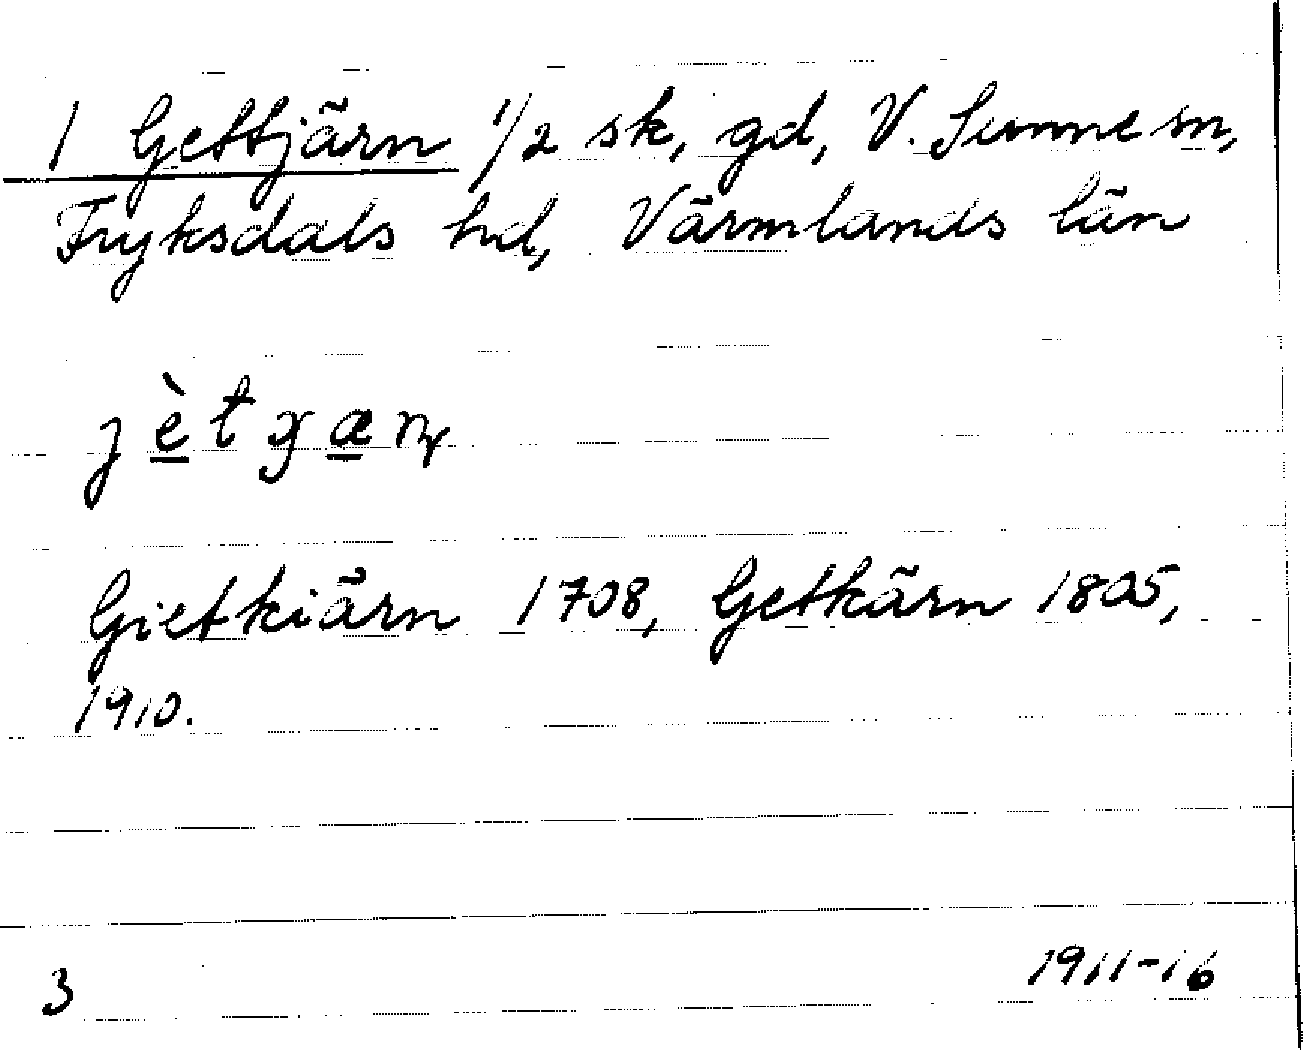 1 Gettjärn 1/2 sk, gd, V. Sunne sn,
Fryksdals hd, Värmlands län
Gietkiärn 1708, Getkärn 1805,
1910.
3 1911-16